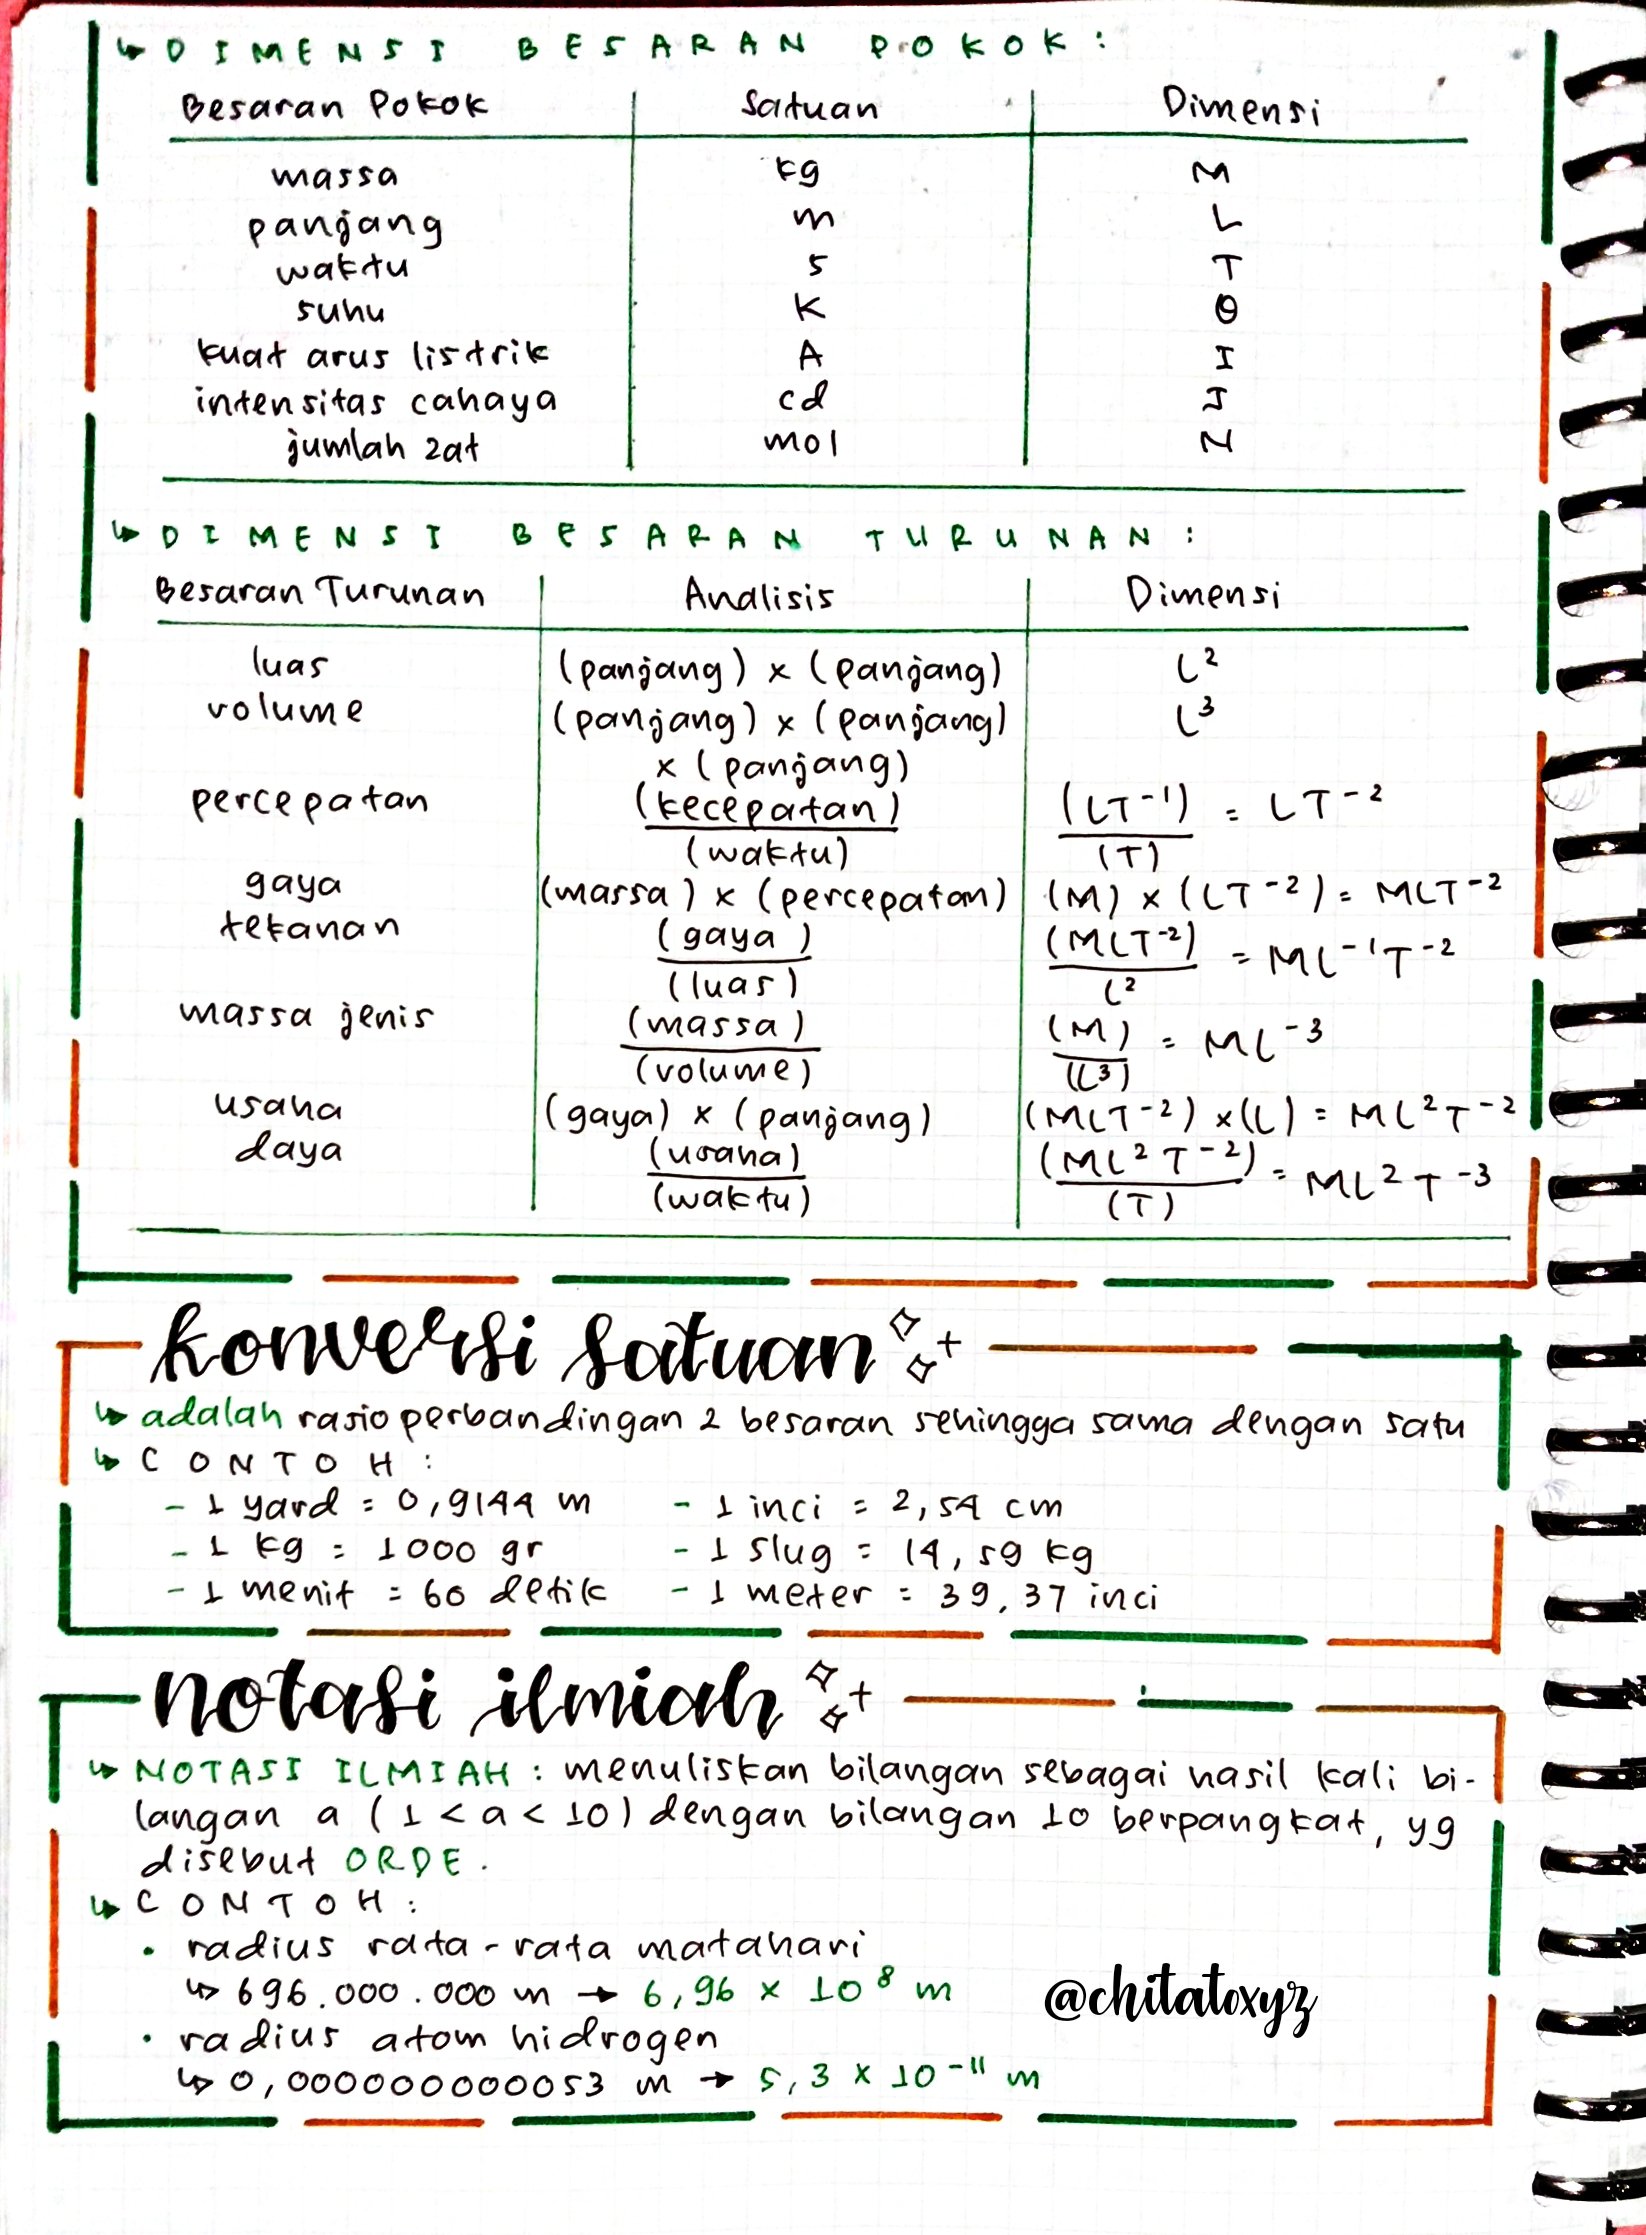 ↳ DIMENSI BESARAN POKOK :
Besaran Pokok | Satuan | Dimensi
massa | kg | M
panjang | m | L
waktu | s | T
suhu | K | Θ
kuat arus listrik | A | I
intensitas cahaya | cd | J
jumlah zat | mol | N
↳ DIMENSI BESARAN TURUNAN :
Besaran Turunan | Analisis | Dimensi
luas | (panjang) x (panjang) | L²
volume | (panjang) x (panjang) | L³
x (panjang)
percepatan | (kecepatan) / (waktu) | (LT⁻¹) / (T) = LT⁻²
gaya | (massa) x (percepatan) | (M) x (LT⁻²) = MLT⁻²
tekanan | (gaya) / (luas) | (MLT⁻²) / L² = ML⁻¹T⁻²
massa jenis | (massa) / (volume) | (M) / (L³) = ML⁻³
usaha | (gaya) x (panjang) | (MLT⁻²) x (L) = ML²T⁻²
daya | (usaha) / (waktu) | (ML²T⁻²) / (T) = ML²T⁻³
konversi satuan
↳ adalah rasio perbandingan 2 besaran sehingga sama dengan satu
↳ CONTOH :
- 1 yard = 0,9144 m - 1 inci = 2,54 cm
- 1 kg = 1000 gr - 1 slug = 14,59 kg
- 1 menit = 60 detik - 1 meter = 39,37 inci
notasi ilmiah
↳ NOTASI ILMIAH : menuliskan bilangan sebagai hasil kali bi-
langan a (1 < a < 10) dengan bilangan 10 berpangkat, yg
disebut ORDE.
↳ CONTOH :
• radius rata-rata matahari
↳ 696.000.000 m → 6,96 x 10⁸ m
@chitatoxyz
• radius atom hidrogen
↳ 0,000000000053 m → 5,3 x 10⁻¹¹ m